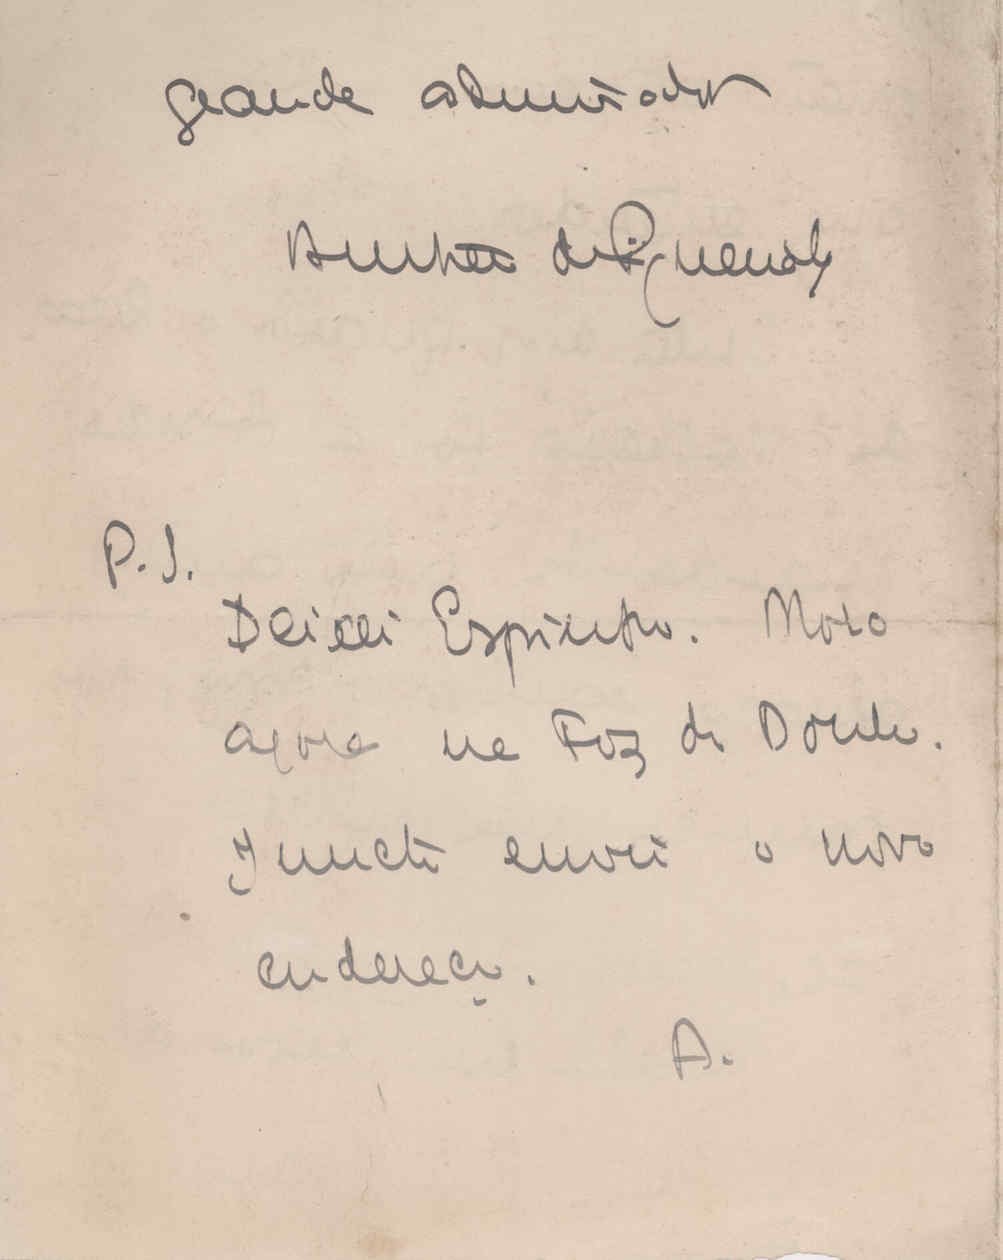 grande admirador
Anthero de Figueiredo
P.S.
Deixei Espinho. Moro
agora na Foz do Douro.
Juncto envio o novo
endereço.
A.